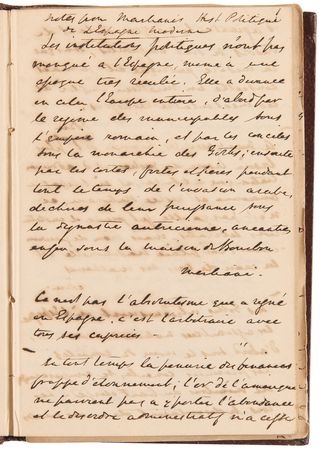 notes from Marliani's Hist Politique
de l'Espagne moderne
Les institutions politiques n'ont pas
manqué a l'Espagne, meme a une
epoque tres reculée. Elle a devancé
en cela l'Europe entiere, d'abord par
le regime des municipalités sous
l'Empire romain, et par les conciles
sous la monarchie des Goths; ensuite
par les cortes, fortes et fieres pendant
tout le temps de l'invasion arabe,
dechues de leur puissance sous
la dynastie autrichienne, aneanties
enfin sous la maison de Bourbon
Marliani.
Ce n'est pas l'absolutisme que a regné
en Espagne, c'est l'arbitraire avec
tous ses caprices
En tout temps la penurie des finances
frappe d'étonnement; l'or de l'amerique
ne parvient pas a y porter l'abondance
et le desordre administratif n'a cessé